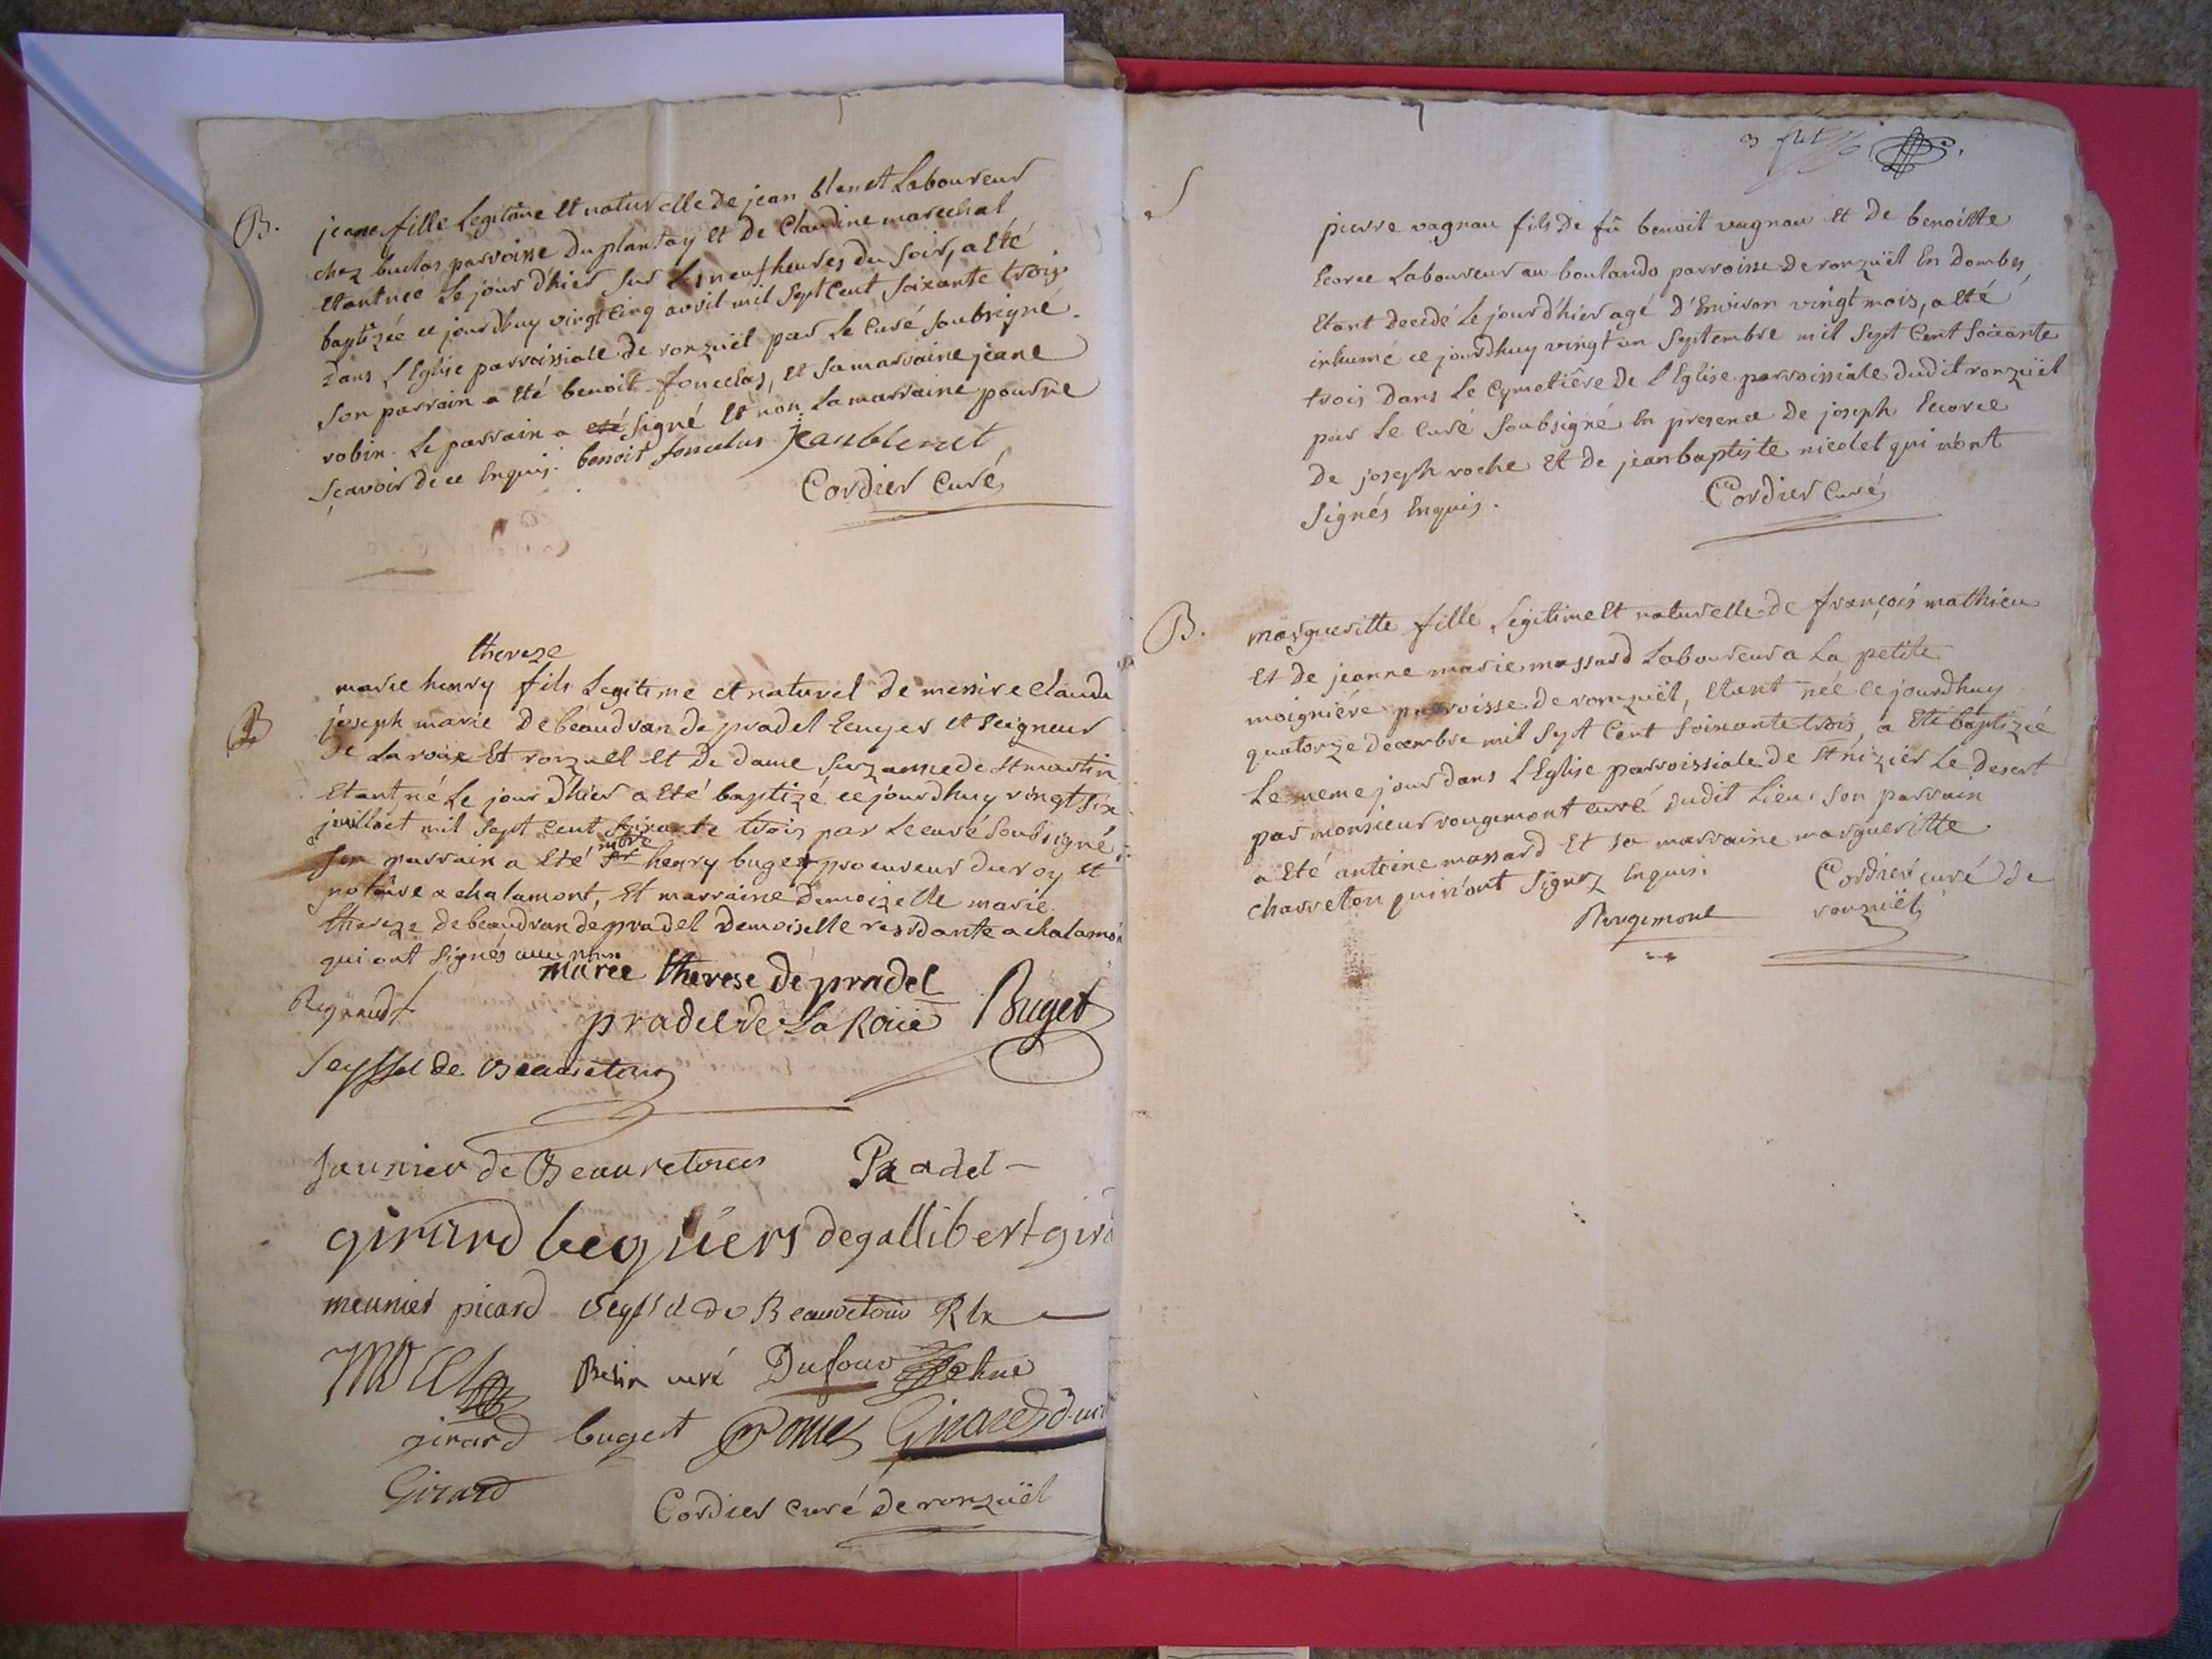 B. jeane fille Legitime et naturelle de jean blanet Laboureur
chez buclas parroisse du plantay et de Claudine marechal
etant née Le jour dhier sur Les neuf heures du soir, a été
baptizée ce jourdhuy vingt cinq avril mil sept cent soixante trois
dans L'Eglise parroissiale de ronzuël par Le Curé soubsigné.
son parrain a été benoit fonculas, et sa marraine jeane
robin. Le parrain a eté signé et non La marraine pour ne
sçavoir de ce Enquis. benoit fonculas jean blenet
Cordier Curé
thereze
marie henry fils Legitime et naturel de messire claude
B joseph marie Debeaudvan de pradel Ecuyer et seigneur
de Laroüe Et ronzuel et de dame suzanne de st martin
Etant né Le jour dhier a eté baptizé ce jourdhuy vingt six
juillact mil sept cent soixante trois par Le curé soubsigné.
mtre
son parrain a eté sr henry buget procureur du roy et
notaire a chalamont, et marraine demoizelle marie
thereze debeaudvan de pradel demoiselle residante a chalamon
qui ont signés
marie therese de pradel
Regnaud pradel de La Roüe Buget
seyssel de Beauretour
saunier de Beauretour Pradel
girard begüers degallibert gira
meunier picard seyssel de Beauretour
Belin curé Dufour
girard buget Girard
Girard Cordier curé de ronzuël
7
3
S pierre vagnau fils de fû benoit vagnau et de benoitte
Ecorce Laboureur au boulardo parroisse de ronzuël En dombes,
Etant decedé Le jour d'hier agé d'Environ vingt mois, a eté
inhumé ce jourdhuy vingt un septembre mil sept cent soixante
trois dans Le Cymetiêre de L'Eglise parroissiale dudit ronzuël
par Le Curé soubsigné En presence De joseph Ecorce
De joseph roche Et de jean baptiste nicolet qui n'ont
signés Enquis. Cordier Curé
B. margueritte fille Legitime Et naturelle de françois mathieu
Et de jeanne marie massard Laboureur a La petite
moigniére parroisse de ronzuël, Etant née ce jourdhuy
quatorze decembre mil sept Cent soixante trois, a Eté baptizée
Le meme jour dans L'Eglise parroissiale de st nizier Le desert
par monsieur rougemont curé dudit Lieu. son parrain
a Eté antoine massard Et sa marraine margueritte
charreton qui n'ont signez Enquis.
Rougemont Cordier curé de
ronzuël